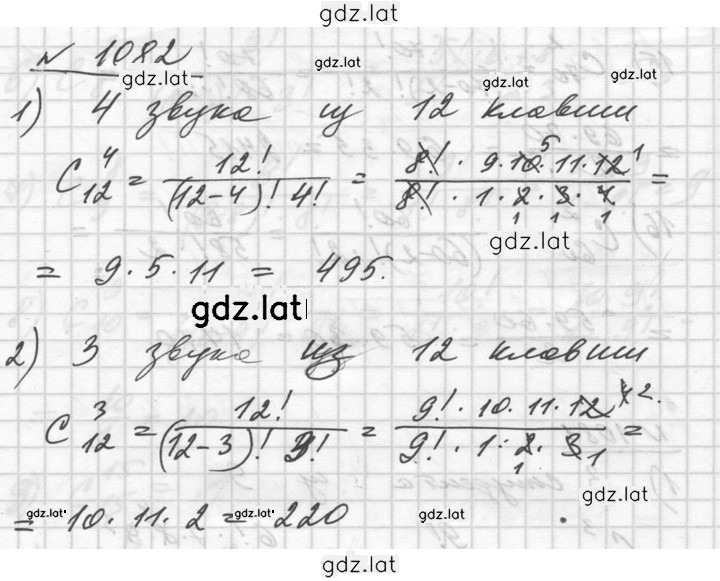 gdz.lat
№ 1082
gdz.lat gdz.lat gdz.lat gdz.lat
1) 4 звука из 12 клавиш
C₁₂⁴ = 12! / (12-4)! 4! = 8! · 9·10·11·12 / 8! · 1·2·3·4 =
5 1
1 1 1
gdz.lat
= 9·5·11 = 495.
gdz.lat
2) 3 звука из 12 клавиш
C₁₂³ = 12! / (12-3)! 3! = 9! · 10·11·12 / 9! · 1·2·3 =
2.
1 1
gdz.lat
= 10·11·2 = 220
gdz.lat gdz.lat gdz.lat
gdz.lat